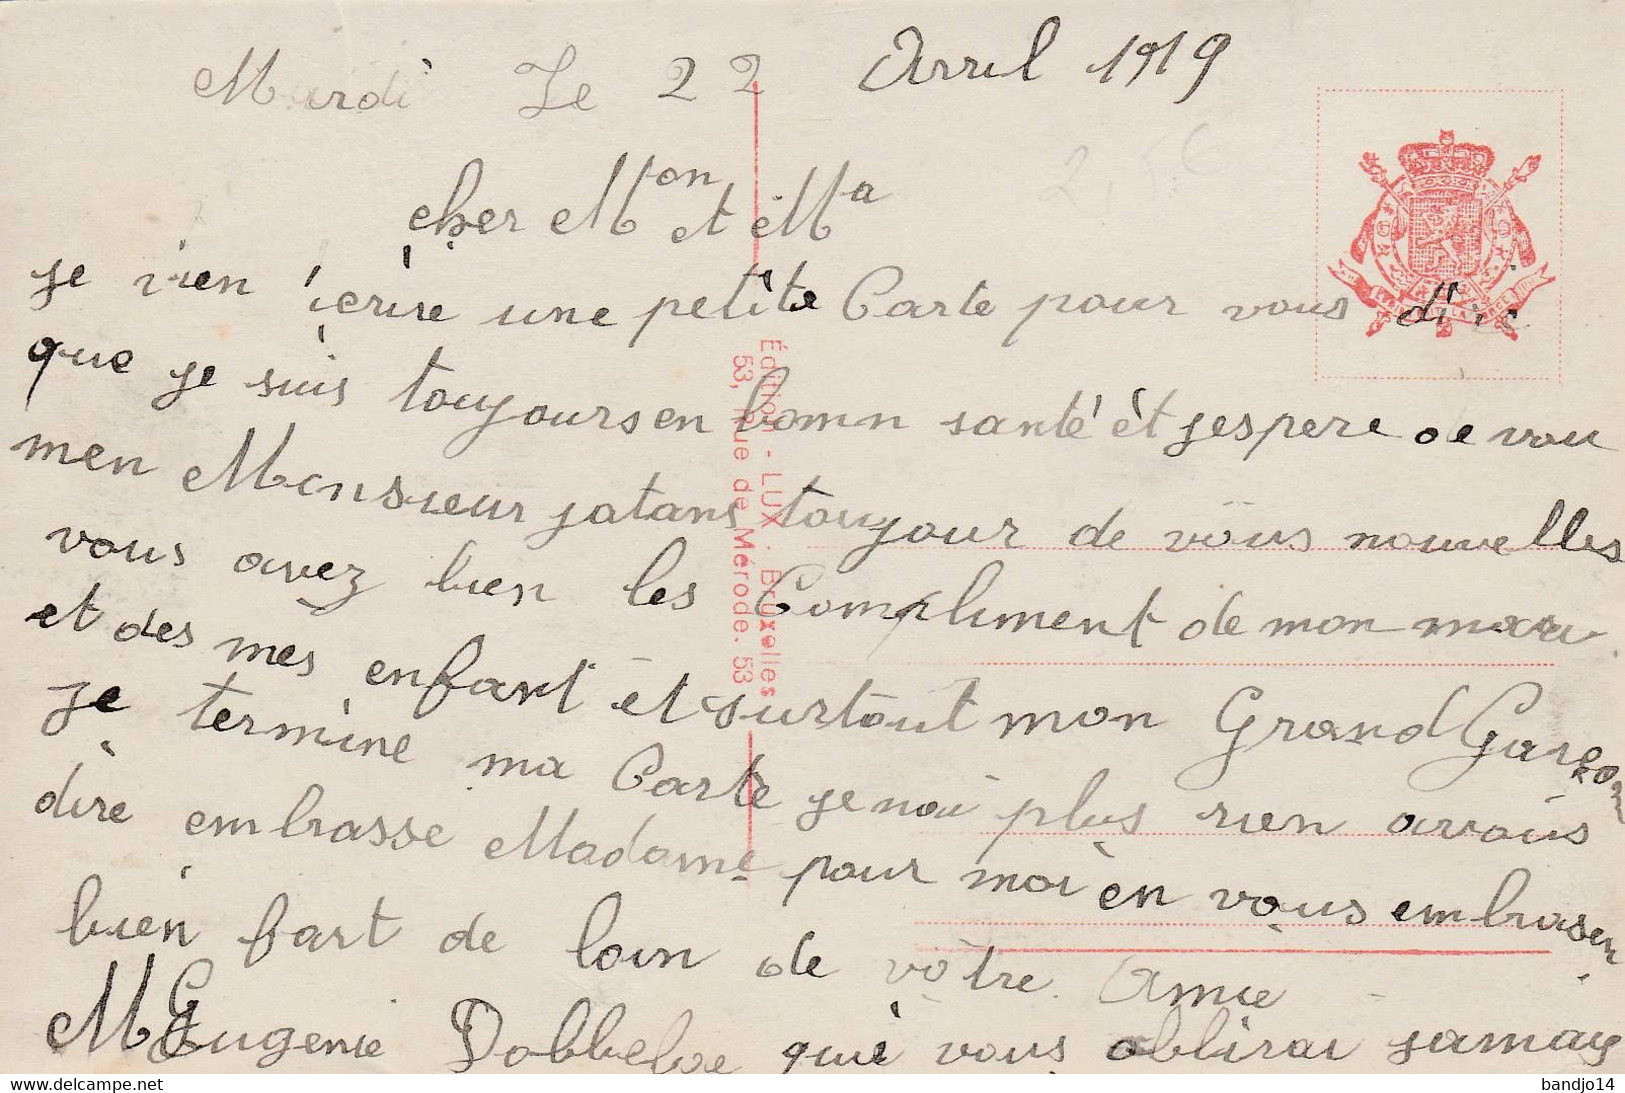 Mardi Le 22 Avril 1919
cher Mon et Ma
je vien écrire une petite Carte pour vous dire
que je suis toujours en bomn santé et jespere de vou
men Monsieur jatans toujour de vous nouvelles
vous avez bien les Compliment de mon mari
et des mes enfant et surtout mon Grand Garçon
je termine ma Carte je nai plus rien avous
dire embrasse Madame pour moi en vous embrasen
bien fort de loin de vôtre Amie
M Eugenie Dobbeloe qui vous oblirai jamais
Édition - LUX - Bruxelles
53, Rue de Mérode. 53
bandjo14